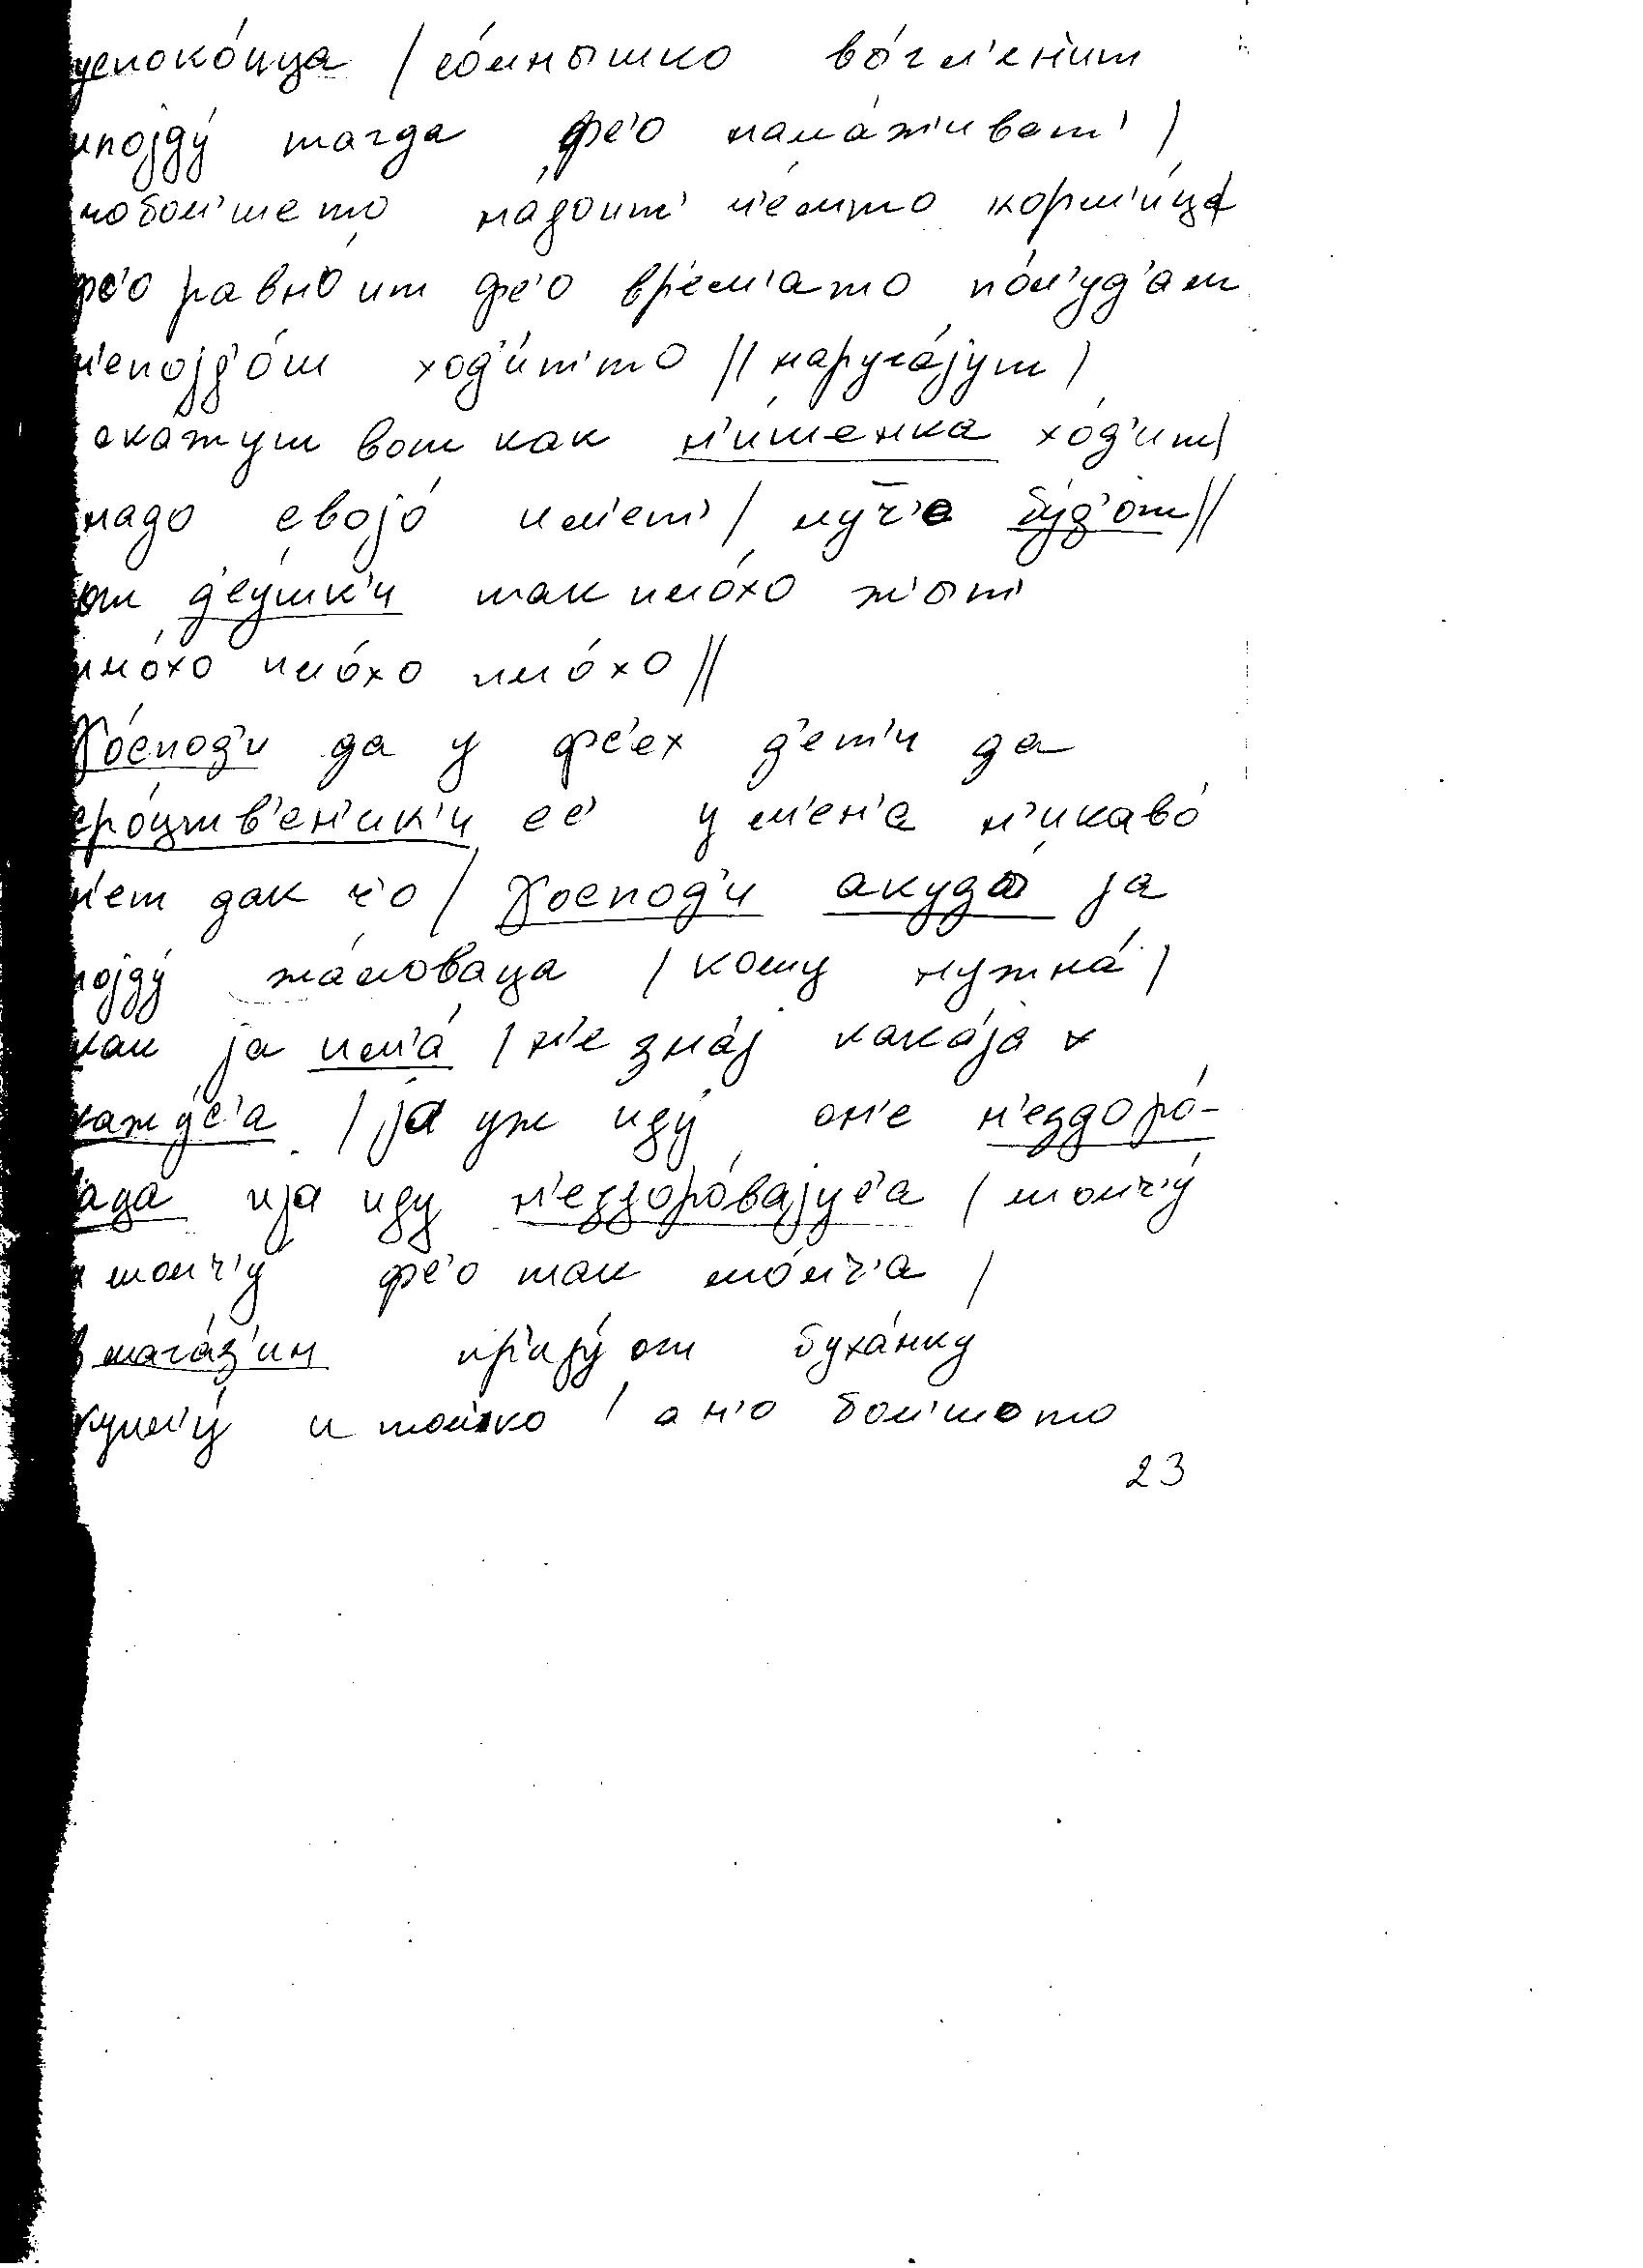 успоко́ица / со́лнышко вы́гл'ен'ит
ипојду́ тагда фс'о нала́ж'иват' /
побол'шето на́доит' л'е́тто корм'и́ца
фс'о равно ит фс'о вр'ем'ато по́л'уд'ам
н'епојд'о́ш ход'и́т'то // наруга́јут /
ска́жут вот как н'и́шенка хо́д'ит /
надо својо́ им'ет' / луч'е бу́д'от //
от д'еу́шк'и так пло́хо ж'ыт'
пло́хо пло́хо пло́хо //
γо́спод'и да у фс'ех д'ет'и да
сро́цтв'ен'ик'и ес' у м'ен'а н'икаво́
н'ет дак ч'о / γоспод'и акуда́ ја
појду́ жа́ловаца / кому нужна́ /
как ја шл'а́ / н'е зна́ј кака́ја
кажу́с'а / ја уж иду́ он'е н'ездоро́-
ваца ија иду н'ездоро́вајус'а / молч'у́
и молч'у́ фс'о так мо́лч'а /
в магаз'ин пр'иду́ от буха́нку
купл'у́ и тол'ко / а н'о бол'шото
23